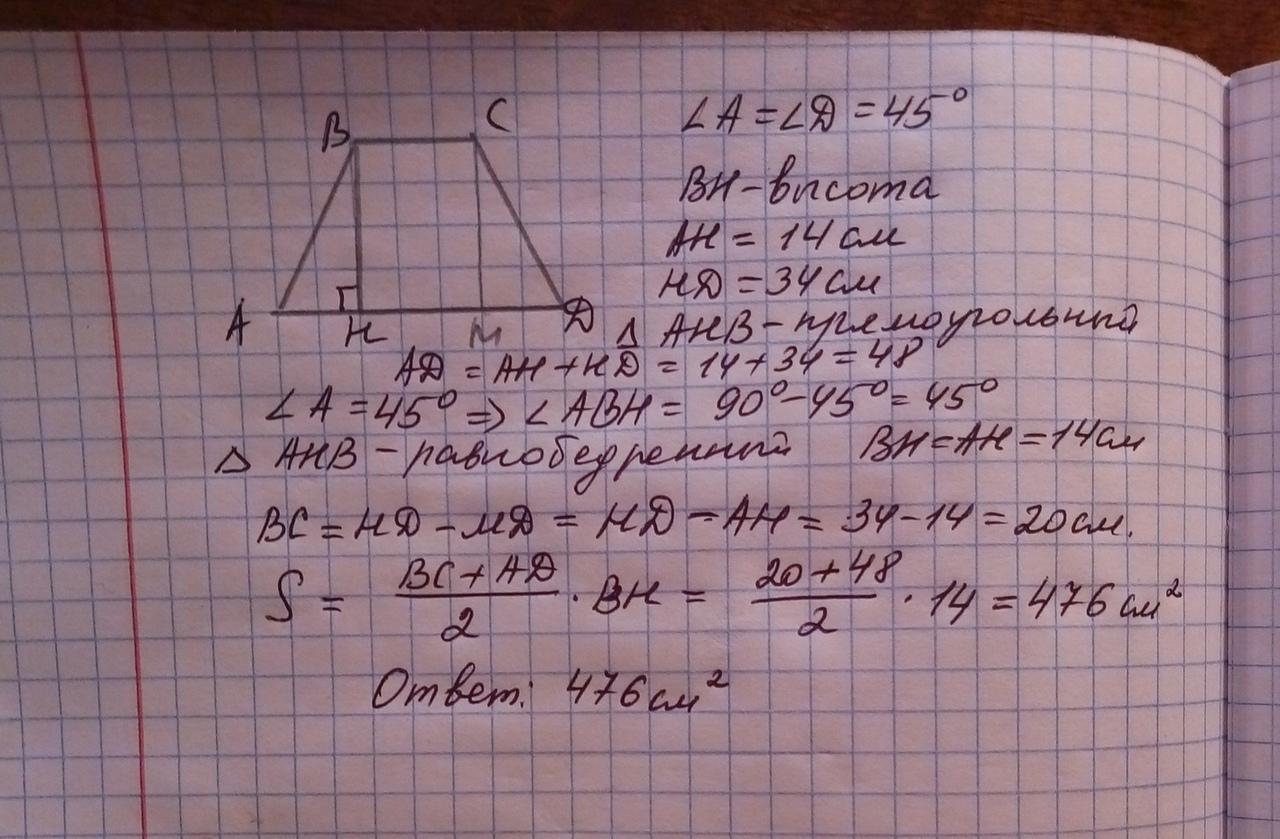 B C
A H M D
∠A = ∠D = 45°
BH – высота
AH = 14 см
HD = 34 см
Δ AHB – прямоугольный
AD = AH + HD = 14 + 34 = 48
∠A = 45° ⇒ ∠ABH = 90° – 45° = 45°
Δ AHB – равнобедренный BH = AH = 14 см
BC = HD – MD = HD – AH = 34 – 14 = 20 см.
S = (BC + AD)/2 · BH = (20 + 48)/2 · 14 = 476 см²
Ответ: 476 см²